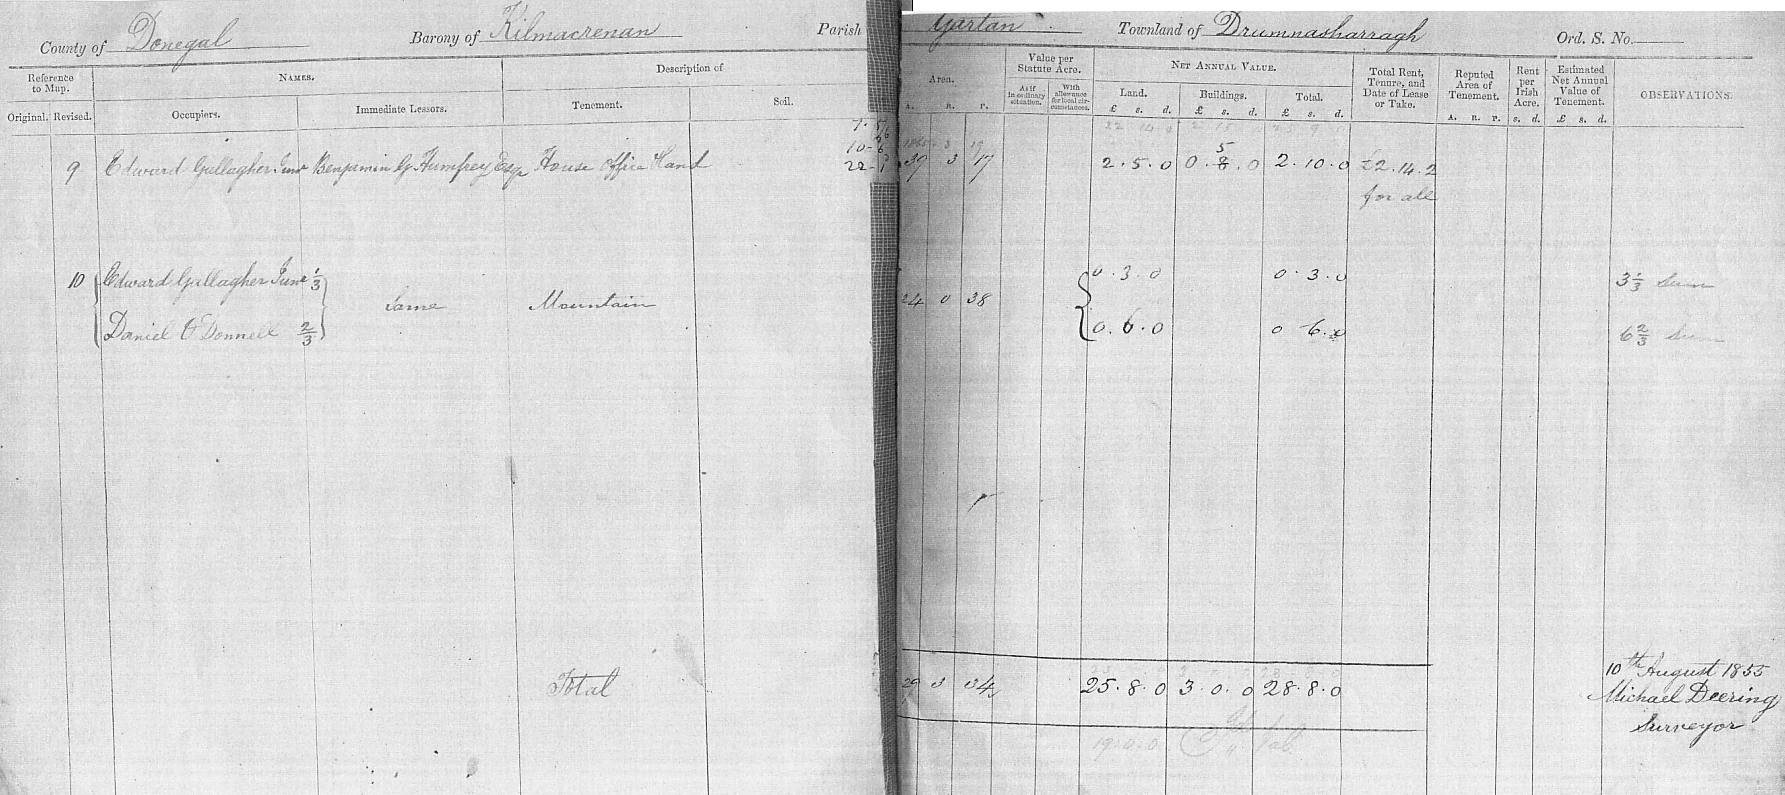 County of Donegal Barony of Kilmacrenan Parish Gartan Townland of Drumnasharragh Ord. S. No.
Reference to Map.
Original. Revised.
NAMES.
Occupiers.
Immediate Lessors.
Description of
Tenement.
Soil.
Area.
A. R. P.
Value per Statute Acre.
As if in ordinary situation.
With allowance for local circumstances.
NET ANNUAL VALUE.
Land.
£ s. d.
Buildings.
£ s. d.
Total.
£ s. d.
Total Rent, Tenure, and Date of Lease or Take.
Reputed Area of Tenement.
A. R. P.
Rent per Irish Acre.
s. d.
Estimated Net Annual Value of Tenement.
£ s. d.
OBSERVATIONS.
9 Edward Gallagher Junr Benjamin G. Humfrey Esqr House Office & Land 39 3 17 2.5.0 0.8.0 2.10.0 £2.14.2
5
for all
10 Edward Gallagher Junr 1/3 0.3.0 0.3.0 3 1/3 Sum
Same Mountain 24 0 38
Daniel O'Donnell 2/3 0.6.0 0 6.0 6 2/3 Sum
Total 29 3 34 25.8.0 3.0.0 28.8.0
19.0.0
10th August 1855
Michael Deering
Surveyor